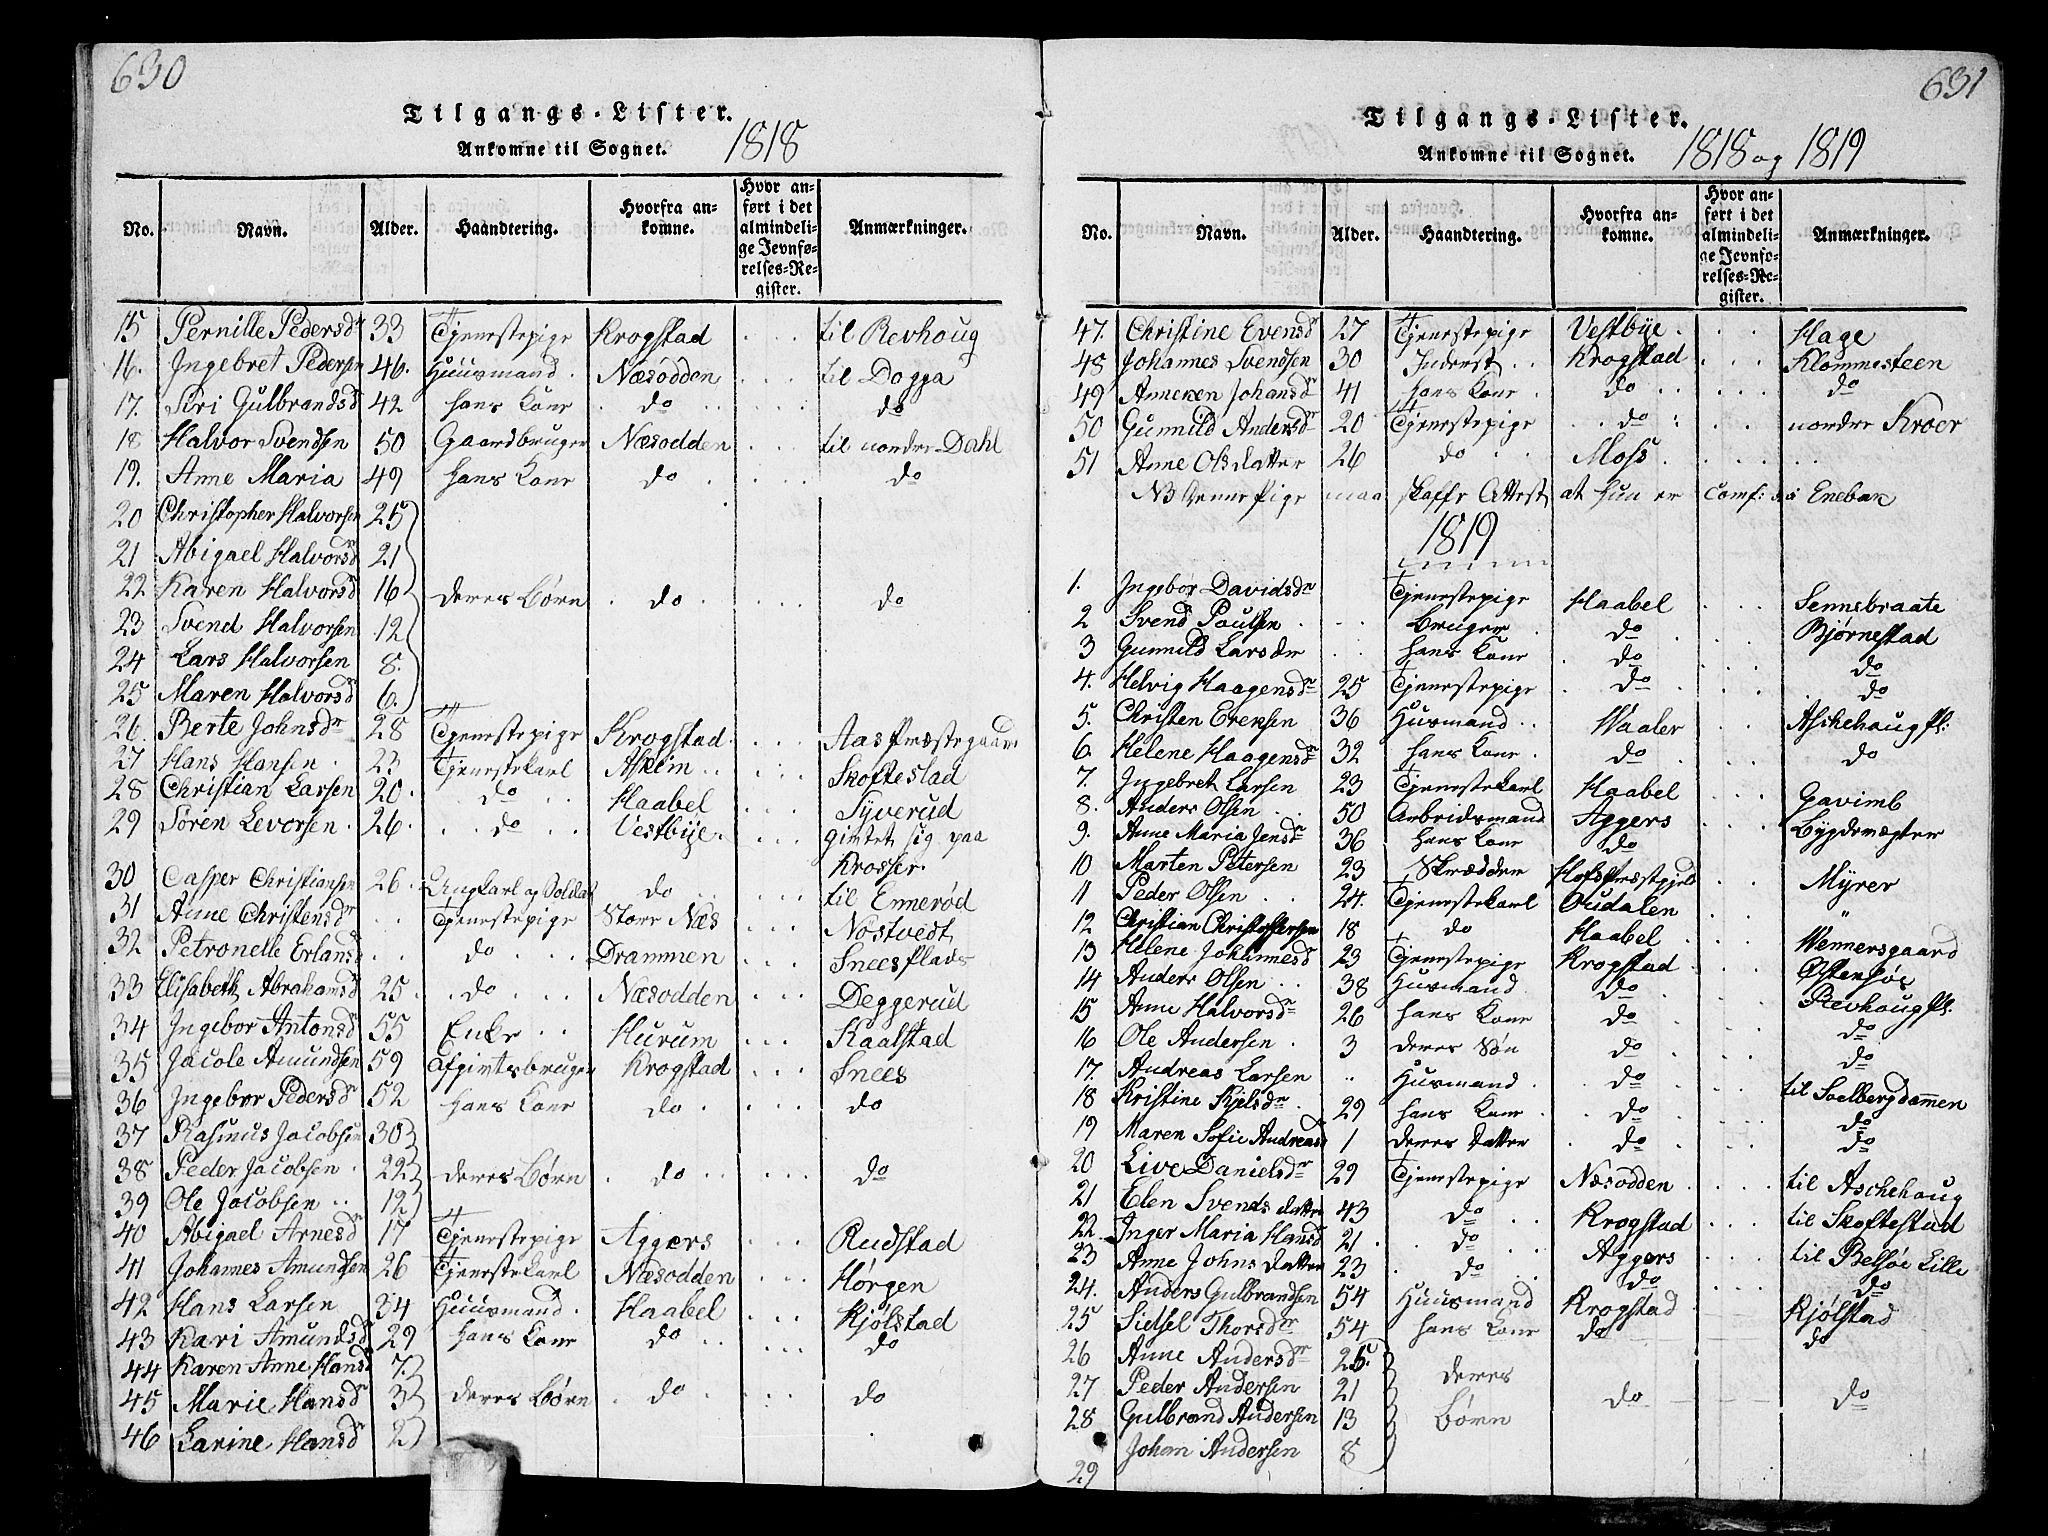 630
Tilgangs-Lister.
Ankomne til Sognet. 1818
No. Navn. Alder. Haandtering. Hvorfra ankomne. Hvor anført i det almindelige Jevnførelses-Register. Anmærkninger.
15 Pernille Pedersdr 33 Tjenestepige Krogstad til Revhoug
16. Ingebret Pedersen 46. Huusmand Næsodden til Dogga
17. Siri Gulbrandsd 42 hans Kone do do
18 Halvor Svendsen 50 Gaardbruger Næsodden til nordre Dahl
19. Anne Maria 49 hans Kone do do
20 Christopher Halvorsen 25
21 Abigael Halvorsdr 21
22 Karen Halvorsdr 16 deres Børn do do
23 Svend Halvorsen 12
24 Lars Halvorsen 8.
25 Maren Halvorsdr 6.
26. Berte Johnsdr 28 Tjenestepige Krogstad Aas Præstegaard
27 Hans Hansen 23 Tjenestekarl Askim Skoftestad
28 Christian Larsen 20. do Haabel Syverud
29 Søren Levorsen 26. do Vestbye giftet sig paa
Krosser
30 Casper Christiansen 26. Ungkarl og Soldat do til Ennerød
31 Anne Christensdr Tjenestepige Store Næs Nostvedt
32 Petronelle Erlandsd do Drammen Sneesplads
33 Elisabeth Abrahamsd 25 do Næsodden Deggerud
34 Ingebor Antonsdr 55 Enke Hurum Kaalstad
35 Jacob Amundsen 59 Afgivtsbruger Krogstad Snees
36 Ingebor Pedersdr 52 hans Kone do do
37 Rasmus Jacobsen 30
38 Peder Jacobsen 22 deres Børn do do
39 Ole Jacobsen 12
40 Abigael Arnesdr 17 Tjenestepige Aggers Rudstad
41 Johannes Amundsen 26 Tjenestekarl Næsodden Hørgen
42 Hans Larsen 34 Huusmand Haabel Kjølstad
43 Kari Amundsdr 29 hans Kone do do
44 Karen Anne Hansd 7.
45 Marie Hansdr 3 deres Børn do do
46 Larine Hansdr 2
631
Tilgangs-Lister.
Ankomne til Sognet. 1818 og 1819
No. Navn. Alder. Haandtering. Hvorfra ankomne. Hvor anført i det almindelige Jevnførelses-Register. Anmærkninger.
47. Christine Evensd 27 Tjenestepige Vestbye Hage
48 Johannes Svendsen 30 Inderst Krogstad Klommesteen
49 Anneken Johansdr 41 hans Kone do do
50 Gunnild Andersdr 20 Tjenestepige do nordre Kroer
51 Anne Olsdatter 26 do Moss
NB denne Pige maa skaffe Attest at hun er Conf: i Eneban
1819
1. Ingebor Davidsdr Tjenestepige Haabel Sennebraate
2 Svend Poulsen Bruger do Bjørnestad
3 Gunnild Larsdr hans Kone do do
4. Helvig Haagensdr 25 Tjenestepige do do
5. Christen Ereksen 36 Husmand Waaler Aschehaug pl:
6. Helene Haagensdr 32 hans Kone do do
7. Ingebret Larsen 23 Tjenestekarl Haabel Gavimb
8. Anders Olsen 50 Arbeidsmand Aggers Bygdemægter
9. Anne Maria Jensdr 36 hans Kone do
10 Marten Petersen 23 Skrædder Hofs Præstgjeld Myrer
11 Peder Olsen 24. Tjenestekarl Oudalen "
12 Christian Christoffersen 18 do Haabel Wennersgaard
13 Helene Johannesd 23 Tjenestepige Krogstad Østensøe
14 Anders Olsen 38 Husmand do Revhoug pl.
15 Anne Halvorsdr 26 hans Kone do do
16 Ole Andersen 3 deres Søn do do
17. Andreas Larsen " Husmand do til Solbergdammen
18 Kristine Kjelsdr 29 hans Kone do do
19 Maren Sofie Andreasd 1 deres Datter do do
20 Live Danielsdr 29 Tjenestepige Næsodden til Aschehaug
21 Elen Svends datter 43 do Krogstad til Skoftestad
22 Inger Maria Hansd 21 do Aggers til Belsøe Lille
23 Anne Johns datter 23 do do do
24. Anders Gulbrandsen 54 Huusmand Krogstad Kjølstad
25 Sidsel Thorsdr 54 hans Kone do do
26 Anne Andersdr 25 deres
27 Peder Andersen 21 do do
28 Gulbrand Andersen 13 Børn
29 Johan Andersen 8